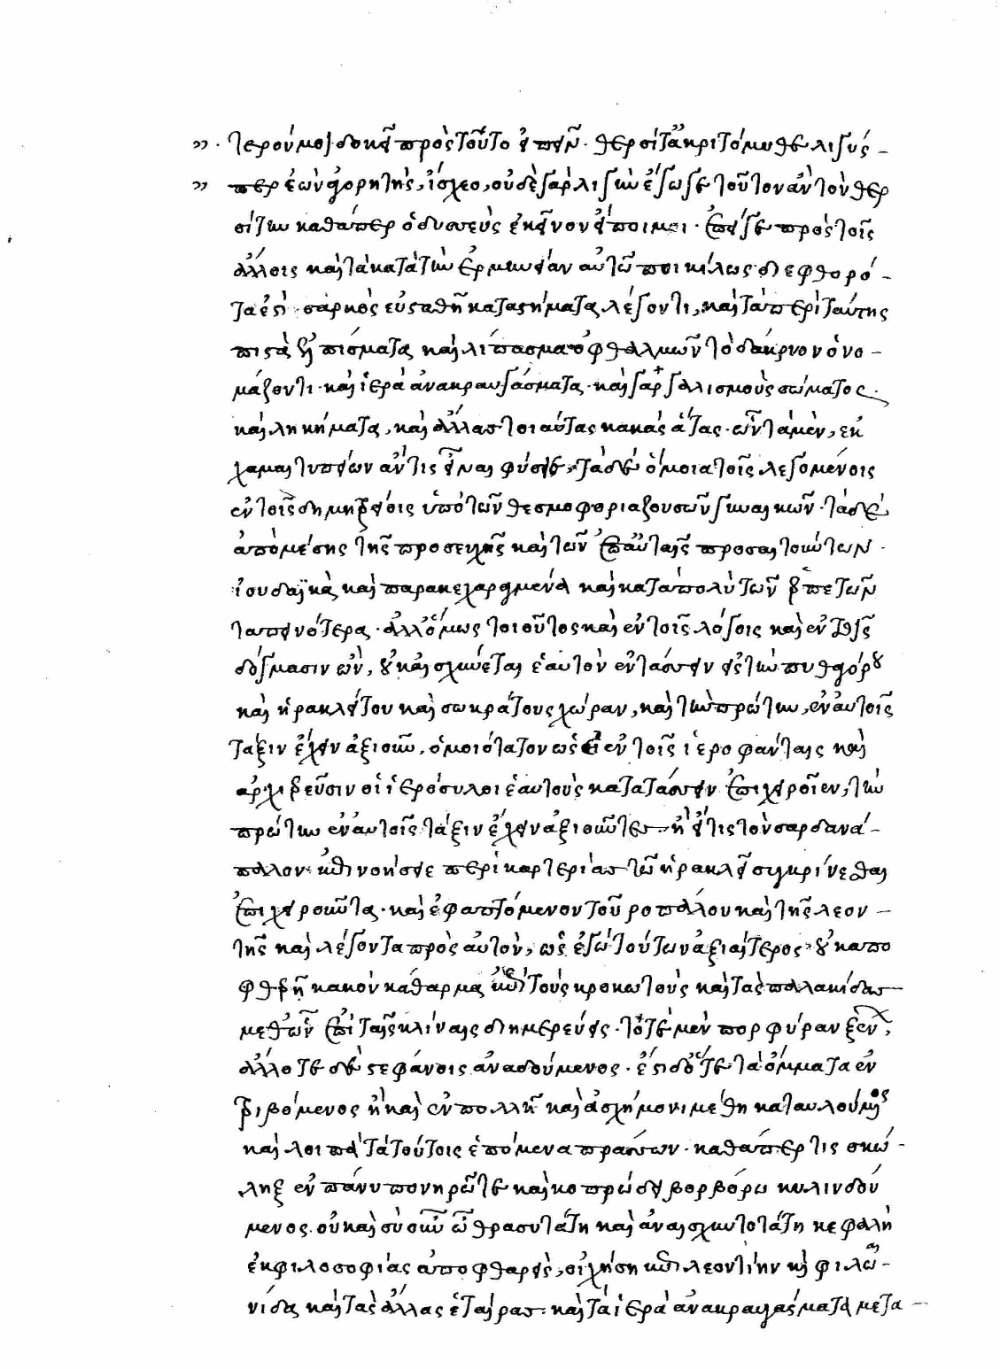 ἱερού μοι δοκεῖ πρὸς τοῦτο εἰπεῖν · θερσίτ' ἀκριτόμυθε λιγύς –
περ ἐὼν ἀγορητής, ἴσχεο, οὐδὲ γὰρ λιγὺν ἔγωγε τοῦτον ἂν τὸν θερ
σίτην καθάπερ ὁδυσσεὺς ἐκεῖνον εἴποιμι · ἐπεί γε πρὸς τοῖς
ἄλλοις καὶ τὰ κατὰ τὴν ἑρμηνείαν αὐτῶ ποικίλως διεφθορό –
τα ἐστί · σαρκὸς εὐσταθῆ καταστήματα λέγοντι, καὶ τὰ περὶ ταύτης
πιστὰ ἐλπίσματα καὶ λίπασμα ὀφθαλμῶν τὸ δάκρυον ὀνο –
μάζοντι · καὶ ἱερὰ ἀνακραυγάσματα · καὶ γαργαλισμοὺς σώματος ·
καὶ ληκήματα, καὶ ἄλλας τοιαύτας κακὰς ἄτας · ὧν τὰ μὲν, ἐκ
χαμαιτυπείων ἄν τις εἶναι φήσειε, τὰ δὲ ὅμοια τοῖς λεγομένοις
ἐν τοῖς δημητρείοις ὑπὸ τῶν θεσμοφοριαζουσῶν γυναικῶν · τὰ δὲ
ἀπὸ μέσης τῆς προσευχῆς καὶ τῶν ἐπ' αὐταῖς προσαιτούντων ·
ἰουδαϊκὰ καὶ παρακεχαραγμένα καὶ κατὰ πολὺ τῶν ἑρπετῶν
ταπεινότερα · ἀλλ' ὅμως τοιοῦτος καὶ ἐν τοῖς λόγοις καὶ ἐν τοῖς
δόγμασιν ὢν, οὐκ αἰσχύνεται ἑαυτὸν ἐντάσσειν εἰς τὴν πυθαγόρου
καὶ ἡρακλείτου καὶ σωκράτους χώραν, καὶ τὴν πρώτην, ἐν αὐτοῖς
τάξιν ἔχειν ἀξιοῦν, ὁμοιότατον ὡς εἰ ἐν τοῖς ἱεροφάνταις καὶ
ἀρχιερεῦσιν οἱ ἱερόσυλοι ἑαυτοὺς κατατάσσειν ἐπιχειροῖεν, τὴν
πρώτην ἐν αὐτοῖς τάξιν ἔχειν ἀξιοῦντες – ἢ εἴ τις τὸν σαρδανά –
παλλον · ἐπινοήσειε περὶ καρτερίας τῶ ἡρακλεῖ συγκρίνεσθαι
ἐπιχειροῦντα · καὶ ἐφαπτόμενον τοῦ ροπάλου καὶ τῆς λεον –
τῆς καὶ λέγοντα πρὸς αὐτὸν, ὡς ἐγὼ τούτων ἀξιαίτερος · οὐκ ἀπο
φθερῆ κακὸν κάθαρμα ἐπὶ τοὺς κροκωτοὺς καὶ τὰς παλλακίδας –
μεθ' ὧν ἐπὶ ταῖς κλίναις διημερεύεις · τότε μὲν πορφύραν ξαίνων,
ἄλλοτε δὲ στεφάνοις ἀναδούμενος · ἔστι δ' ὅτε τὰ ὄμματα ἐν
τριβόμενος ἢ καὶ ἐν πολλῆ καὶ ἀσχήμονι μέθη καταυλούμενος
καὶ λοιπὰ τὰ τούτοις ἑπόμενα πράσσων · καθάπερ τις σκώ –
ληξ ἐν πάνυ πονηρῶ τε καὶ κοπρώδει βορβόρω κυλινδού
μενος · οὐ καὶ σὺ οὖν ὦ θρασυτάτη καὶ ἀναισχυντοτάτη κεφαλὴ
ἐκ φιλοσοφίας ἀποφθαρεὶς, οἰχήση ἐπὶ λεοντίην καὶ φιλαι –
νίδα καὶ τὰς ἄλλας ἑταίρας · καὶ τὰ ἱερὰ ἀνακραυγάσματα μετα –